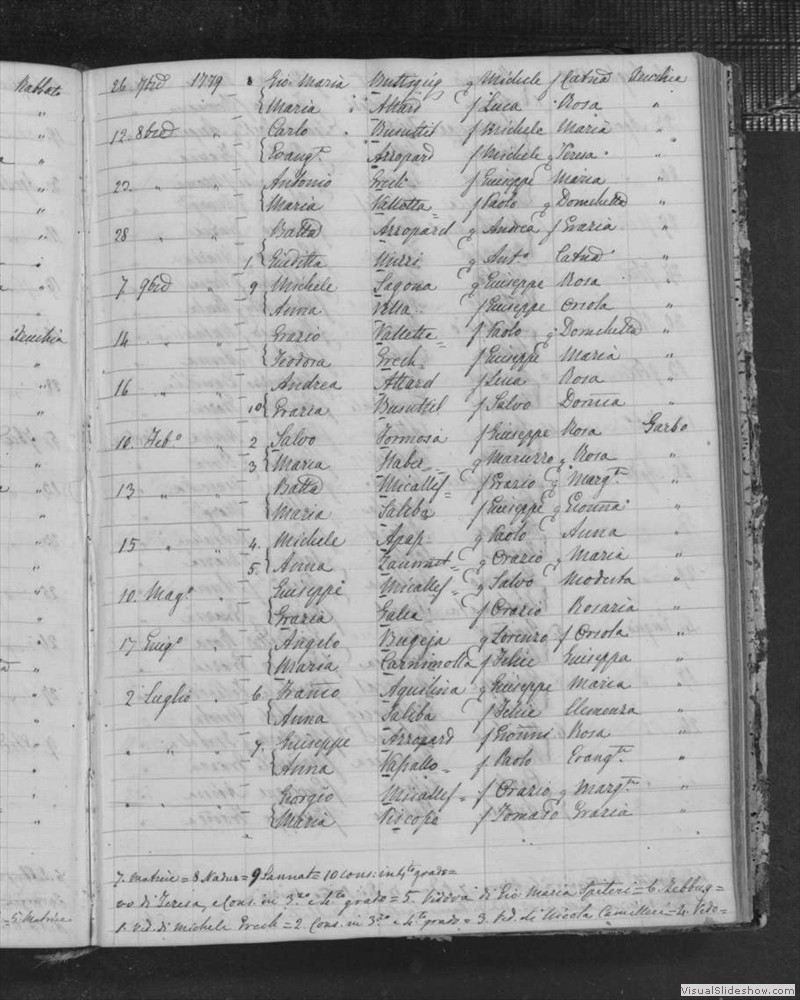 Rabbato
26 7bre 1779 8 Gio. Maria Buttigieg q Michele f Catna Xeuchia
Maria Attard f Luca Rosa "
12 8bre " Carlo Busuttil f Michele Maria "
Evangta Arropard f Michele q Teresa "
22 " " Antonio Grech f Giuseppe Maria "
Maria Valletta f Paolo q Domchella "
28 " " Batta Arropard q Andrea f Grazia "
1 Giuditta Mizzi q Anto Catna "
7 9bre " 9 Michele Sagona q Giuseppe Rosa "
Anna Vella f Giuseppe Orsola "
Xeuchia
14 " " Grazio Valletta f Paolo q Domchella "
Teodora Grech f Giuseppe Maria "
16 " " Andrea Attard f Luca Rosa "
10 Grazia Busuttil f Salvo Domca "
10 Febo " 2 Salvo Formosa f Giuseppe Rosa Garbo
3 Maria Haber q Maruzzo q Rosa "
13 " " Batta Micallef f Grazio q Margta "
Maria Saliba f Giuseppe q Gionna "
15 " " 4 Michele Apap q Paolo Anna "
5 Anna Zammit q Orazio q Maria "
10 Mago " Giuseppe Micallef q Salvo Modesta "
Grazia Galea f Orazio Rosaria "
17 Giugo " Angelo Bugeja q Lorenzo f Orsola "
Maria Farninolla f Felice Giuseppa "
2 Luglio " 6 Franco Aquilina q Giuseppe Maria "
Anna Saliba f Felice Clemenza "
" " " 7 Giuseppe Arropard f Gionni Rosa "
Anna Vassallo f Paolo Evangta "
" " " Giorgio Micallef f Orazio q Margta "
Maria Piscopo f Tomaso Grazia "
7. Matrice = 8 Nadur = 9 Sannat = 10 Cons: in 4to grado =
vo di Teresa, e Cons. in 3zo e 4to grado = 5. Vedova di Gio. Maria Spiteri = 6. Zebbug =
1. Ved. di Michele Grech = 2. Cons. in 3zo e 4to grado = 3. Ved. di Nicola Camilleri = 4. Vedo =
= 5 Matrice
VisualSlideshow.com